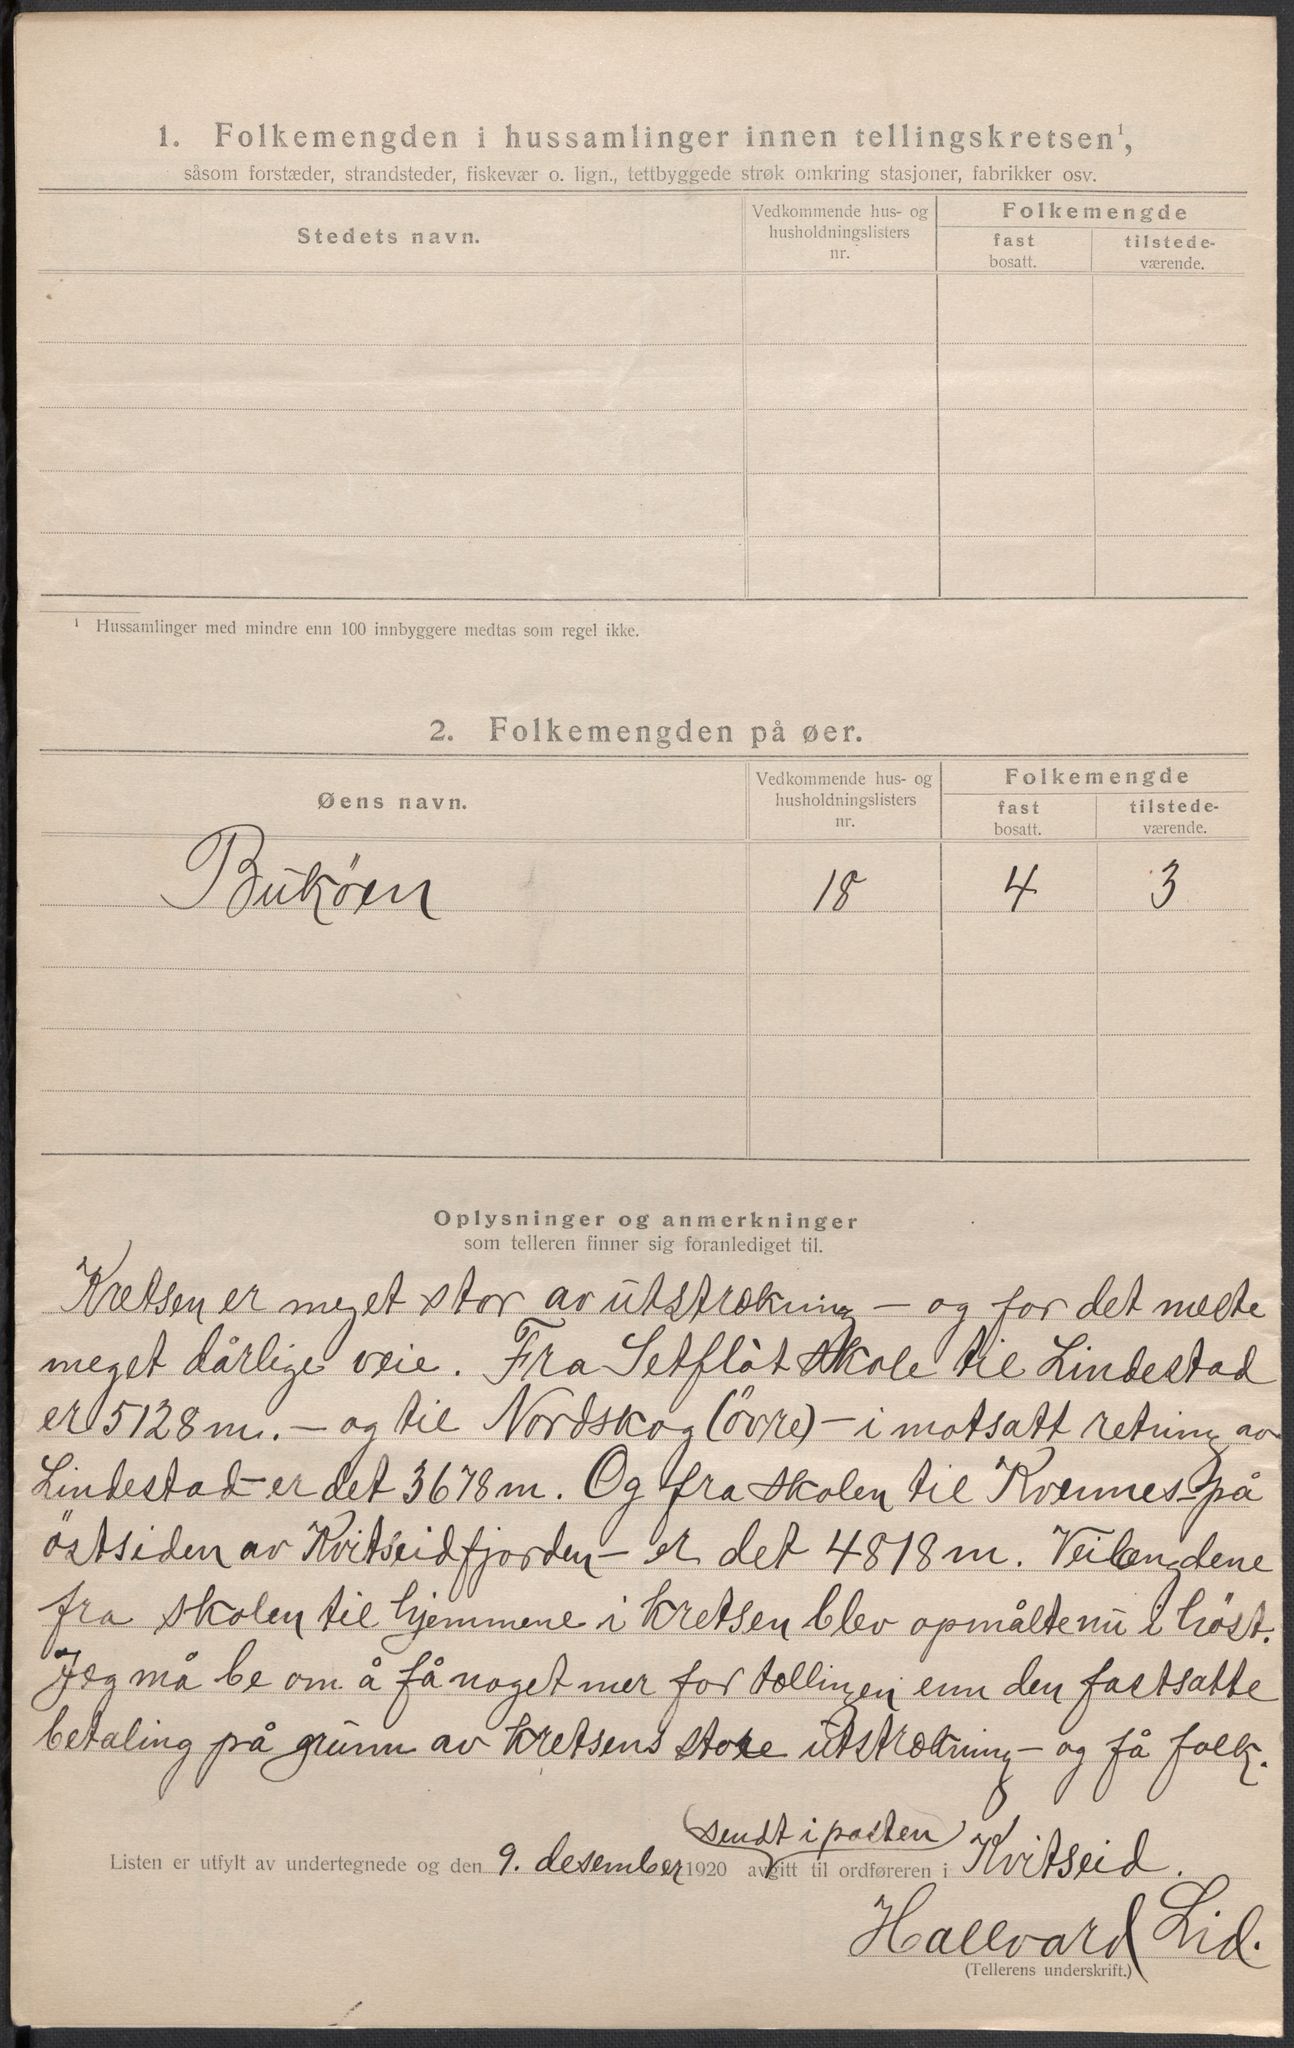 1. Folkemengden i hussamlinger innen tellingskretsen¹,
såsom forstæder, strandsteder, fiskevær o. lign., tettbyggede strøk omkring stasjoner, fabrikker osv.
Stedets navn.
Vedkommende hus- og
husholdningslisters
nr.
Folkemengde
fast
bosatt.
tilstede-
værende.
¹ Hussamlinger med mindre enn 100 innbyggere medtas som regel ikke.
2. Folkemengden på øer.
Øens navn.
Vedkommende hus- og
husholdningslisters
nr.
Folkemengde
fast
bosatt.
tilstede-
værende.
Buköen 18 4 3
Oplysninger og anmerkninger
som telleren finner sig foranlediget til.
Kretsen er meget stor av utstrækning – og for det meste
meget dårlige veie. Fra Setflöt skole til Lindestad
er 5128 m. – og til Nordskog (övre) – i motsatt retning av
Lindestad – er det 3678 m. Og fra skolen til Kvennes – på
östsiden av Kvitseidfjorden – er det 4818 m. Veilengdene
fra skolen til hjemmene i kretsen blev opmålte nu i höst.
Jeg må be om å få noget mer for tællingen enn den fastsatte
betaling på grunn av kretsens store utstrækning – og få folk.
(sendt i posten)
Listen er utfylt av undertegnede og den 9. desember 1920 avgitt til ordføreren i Kvitseid.
Hallvard Lid.
(Tellerens underskrift.)